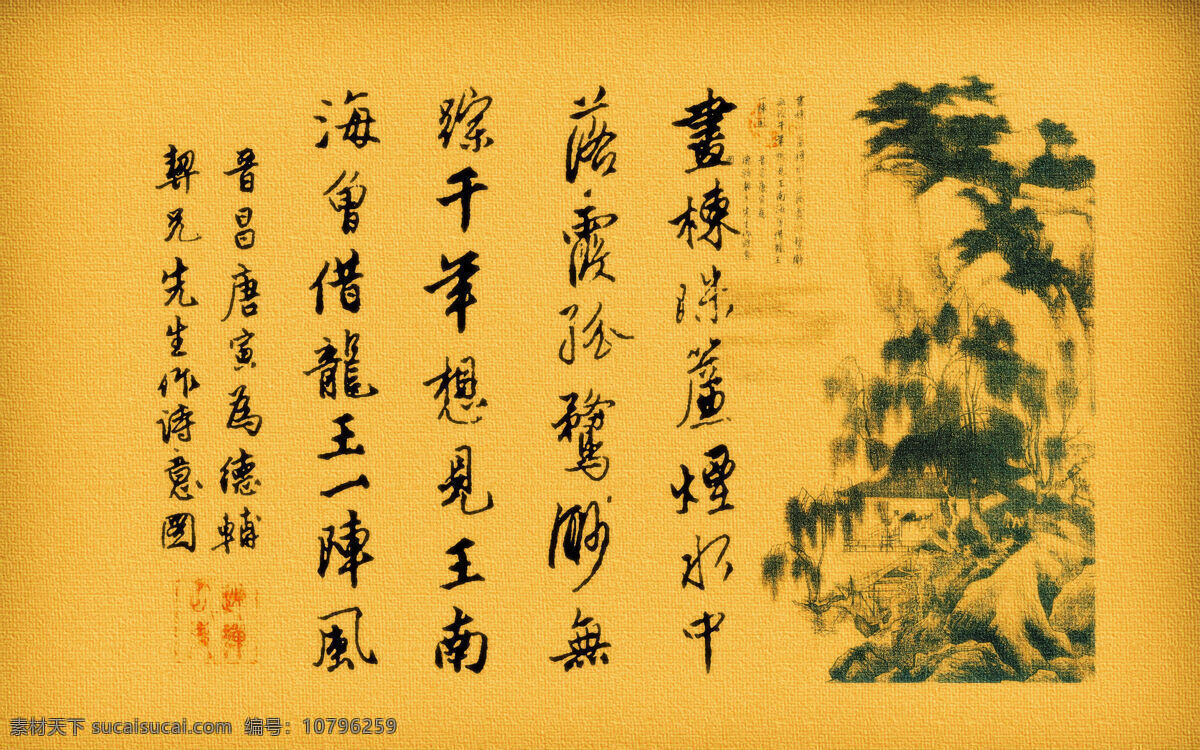 畫棟珠簾煙水中
落霞孤鶩渺無
踪千年想見王南
海曾借龍王一陣風
晉昌唐寅為德輔
契兄先生作詩意圖
素材天下 sucaisucai.com 编号：10796259